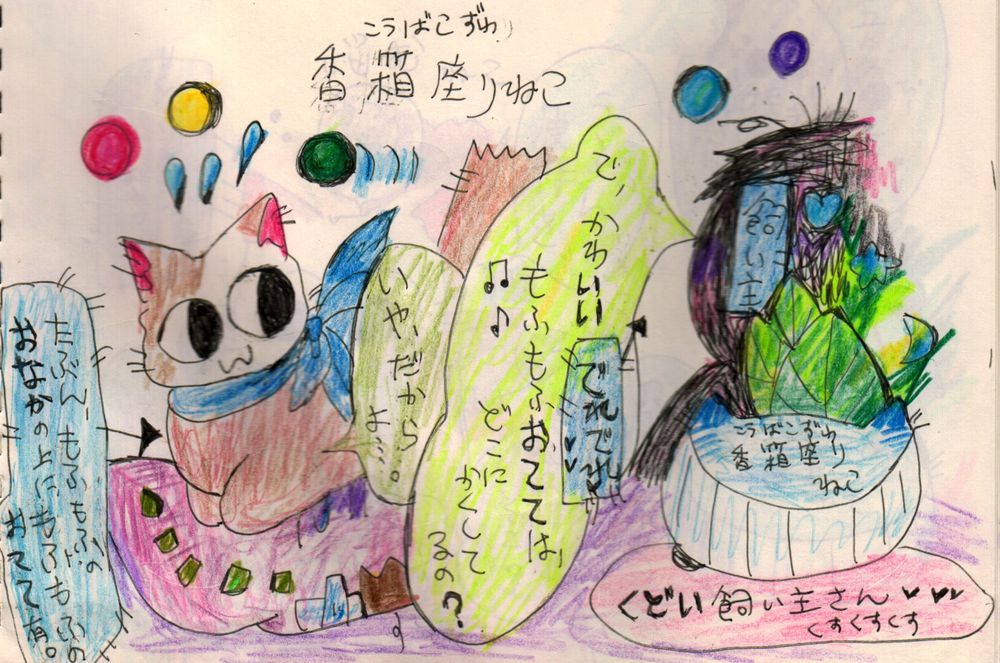 こうばこずわ
香箱座りねこ
飼い主
で、かわいい
もふもふおてては
どこに
かくして
るの?
♫♪
でれでれ♥♥
いやだから
よ…。
たぶん、もふもふの
おなかの上にもふもふの
おてて有。
こうばこずわ
香箱座り
ねこ
くどい飼い主さん♥♥♥
くすくすくす